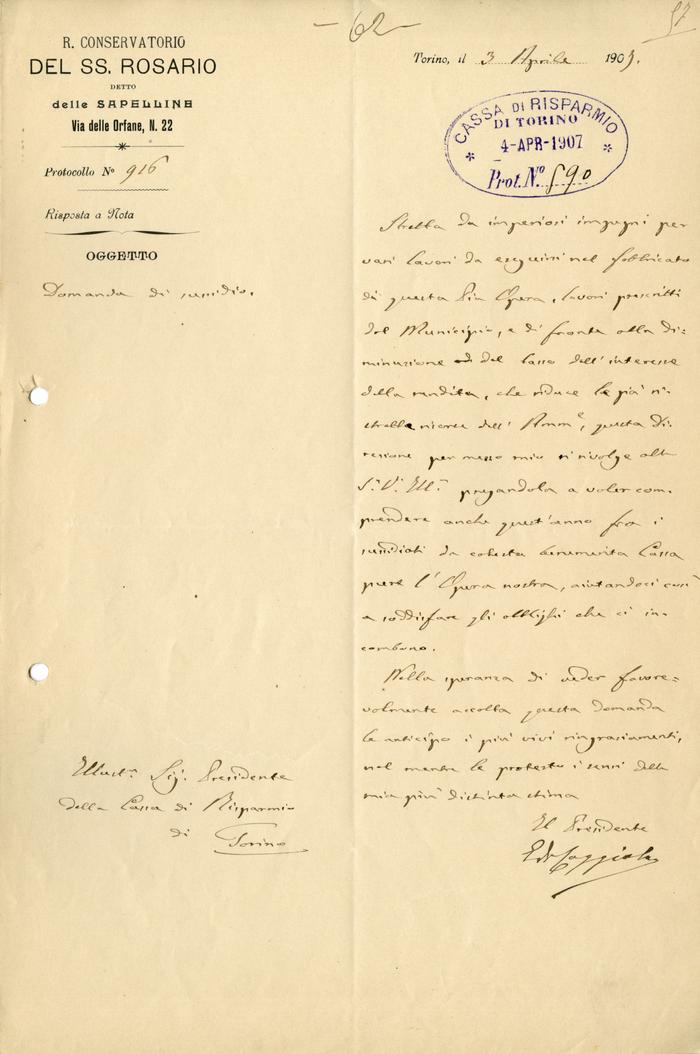 - 62 -
57
R. CONSERVATORIO
DEL SS. ROSARIO
DETTO
delle SAPELLINE
Via delle Orfane, N. 22
Protocollo N° 916
Risposta a Nota
OGGETTO
Domanda di sussidio.
Torino, il 3 Aprile 1907.
CASSA DI RISPARMIO
DI TORINO
4-APR-1907
Prot. N. 590
Stretta da imperiosi impegni per
vari lavori da eseguirsi nel fabbricato
di questa Pia Opera, lavori prescritti
dal Municipio, e di fronte alla di=
minuzione del tasso dell'interesse
della rendita, che riduce le più ri=
strette risorse dell'Amm.e, questa Di=
rezione per mezzo mio si rivolge alla
S. V. Ill. pregandola a voler com=
prendere anche quest'anno fra i
sussidiati da cotesta benemerita Cassa
pure l'Opera nostra, aiutandoci così
a soddisfare gli obblighi che ci in=
combono.
Nella speranza di veder favore=
volmente accolta questa domanda
le anticipo i più vivi ringraziamenti,
nel mentre le protesto i sensi della
mia più distinta stima
Il Presidente
Illust. Sig. Presidente
della Cassa di Risparmio
di Torino